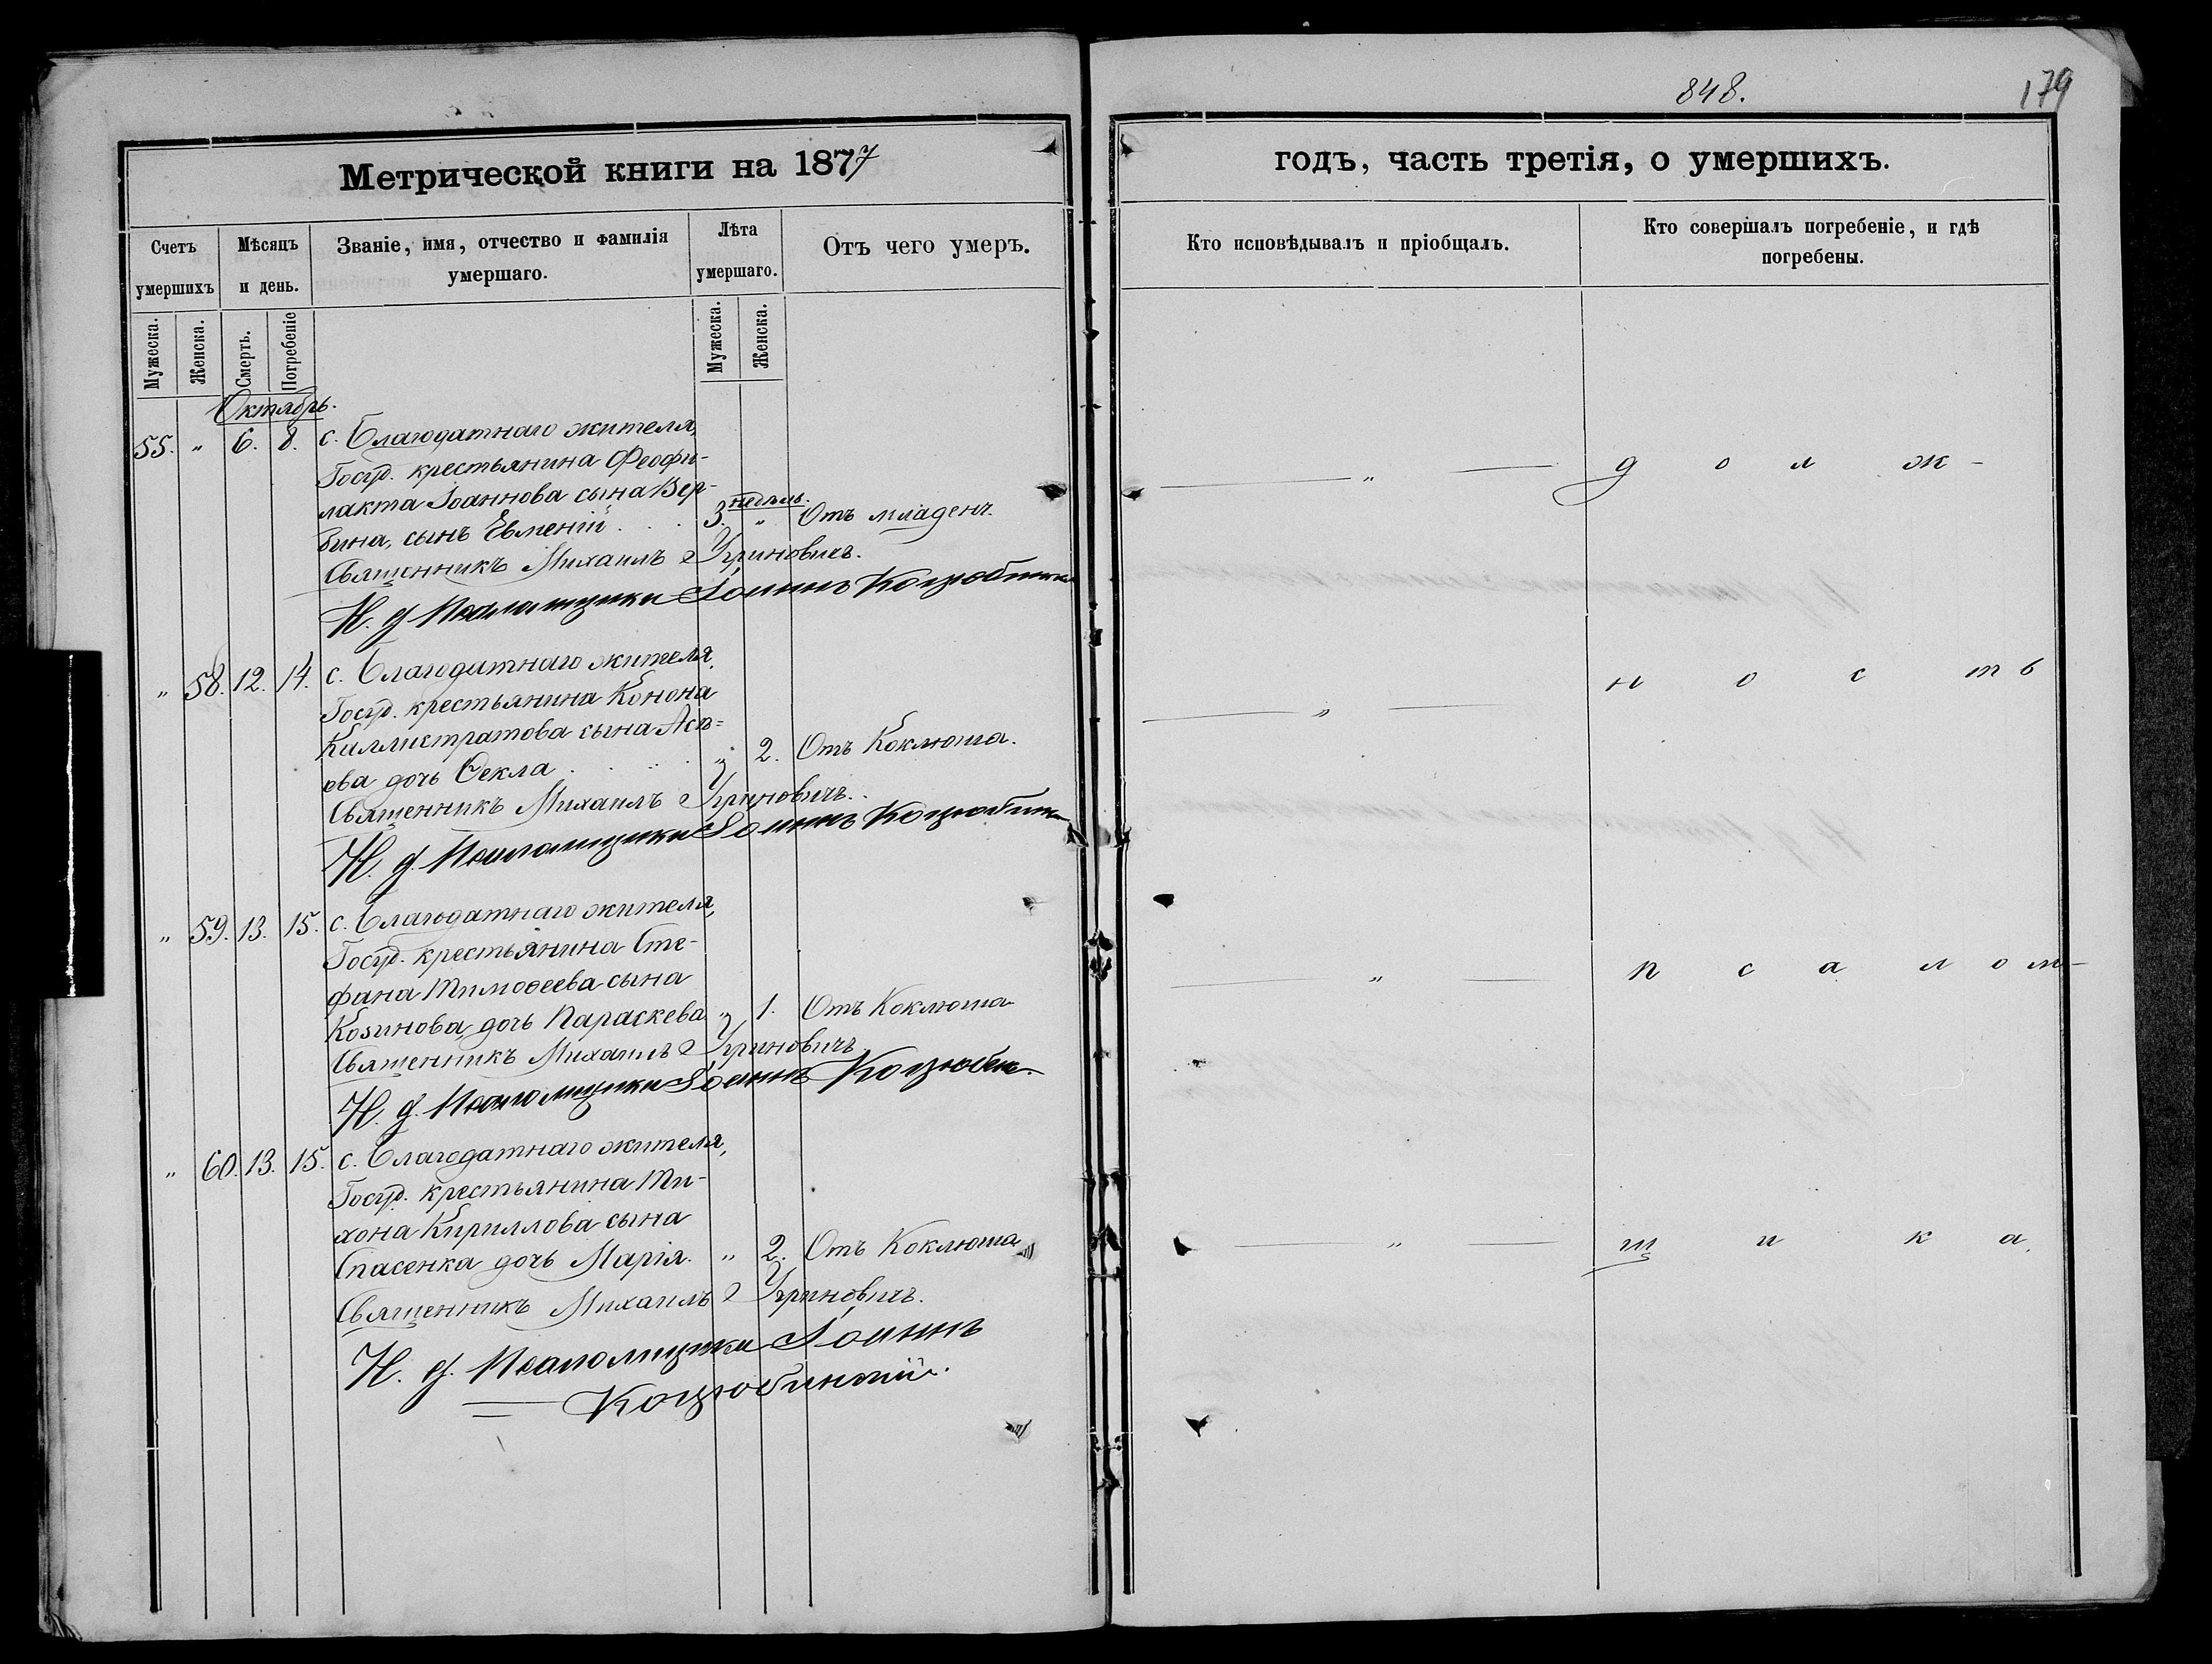 848.
179
Метрической книги на 1877
годъ, часть третія, о умершихъ.
Счетъ умершихъ
Мѣсяцъ и день.
Званіе, имя, отчество и фамилія умершаго.
Лѣта умершаго.
Отъ чего умеръ.
Кто исповѣдывалъ и пріобщалъ.
Кто совершалъ погребеніе, и гдѣ погребены.
Мужеска.
Женска.
Смерть.
Погребеніе
Мужеска.
Женска.
Октябрь.
55. „ 6. 8. с. Благодатнаго жителя,
Госуд. крестьянина Феофи-
лакта Іоаннова сына Вер-
бина, сынъ Евменій . . . 3. недѣль. „ Отъ младенч.
Священникъ Михаилъ Угриновичъ.
И. д. Псаломщика Іоаннъ Коцюбинск
„ 58. 12. 14. с. Благодатнаго жителя,
Госуд. крестьянина Конона
Каллистратова сына Асѣ=
ева дочь Ѳекла . . . . „ 2. Отъ Коклюша.
Священникъ Михаилъ Угриновичъ.
И. д. Псаломщика Іоаннъ Коцюбинск
„ 59. 13. 15. с. Благодатнаго жителя,
Госуд. крестьянина Сте-
фана Тимоѳеева сына
Козинова, дочь Параскева. „ 1. Отъ Коклюша
Священникъ Михаилъ Угриновичъ
И. д. Псаломщика Іоаннъ Коцюбин.
„ 60. 13. 15. с. Благодатнаго жителя,
Госуд. крестьянина Ти-
хона Кириллова сына
Спасенка дочь Марія. „ 2. Отъ Коклюша
Священникъ Михаилъ Угриновичъ.
И. д. Псаломщика Іоаннъ
Коцюбинскій.
„ д о л ж -
„ н о с т ь
„ п с а л о м -
„ щ и к а.